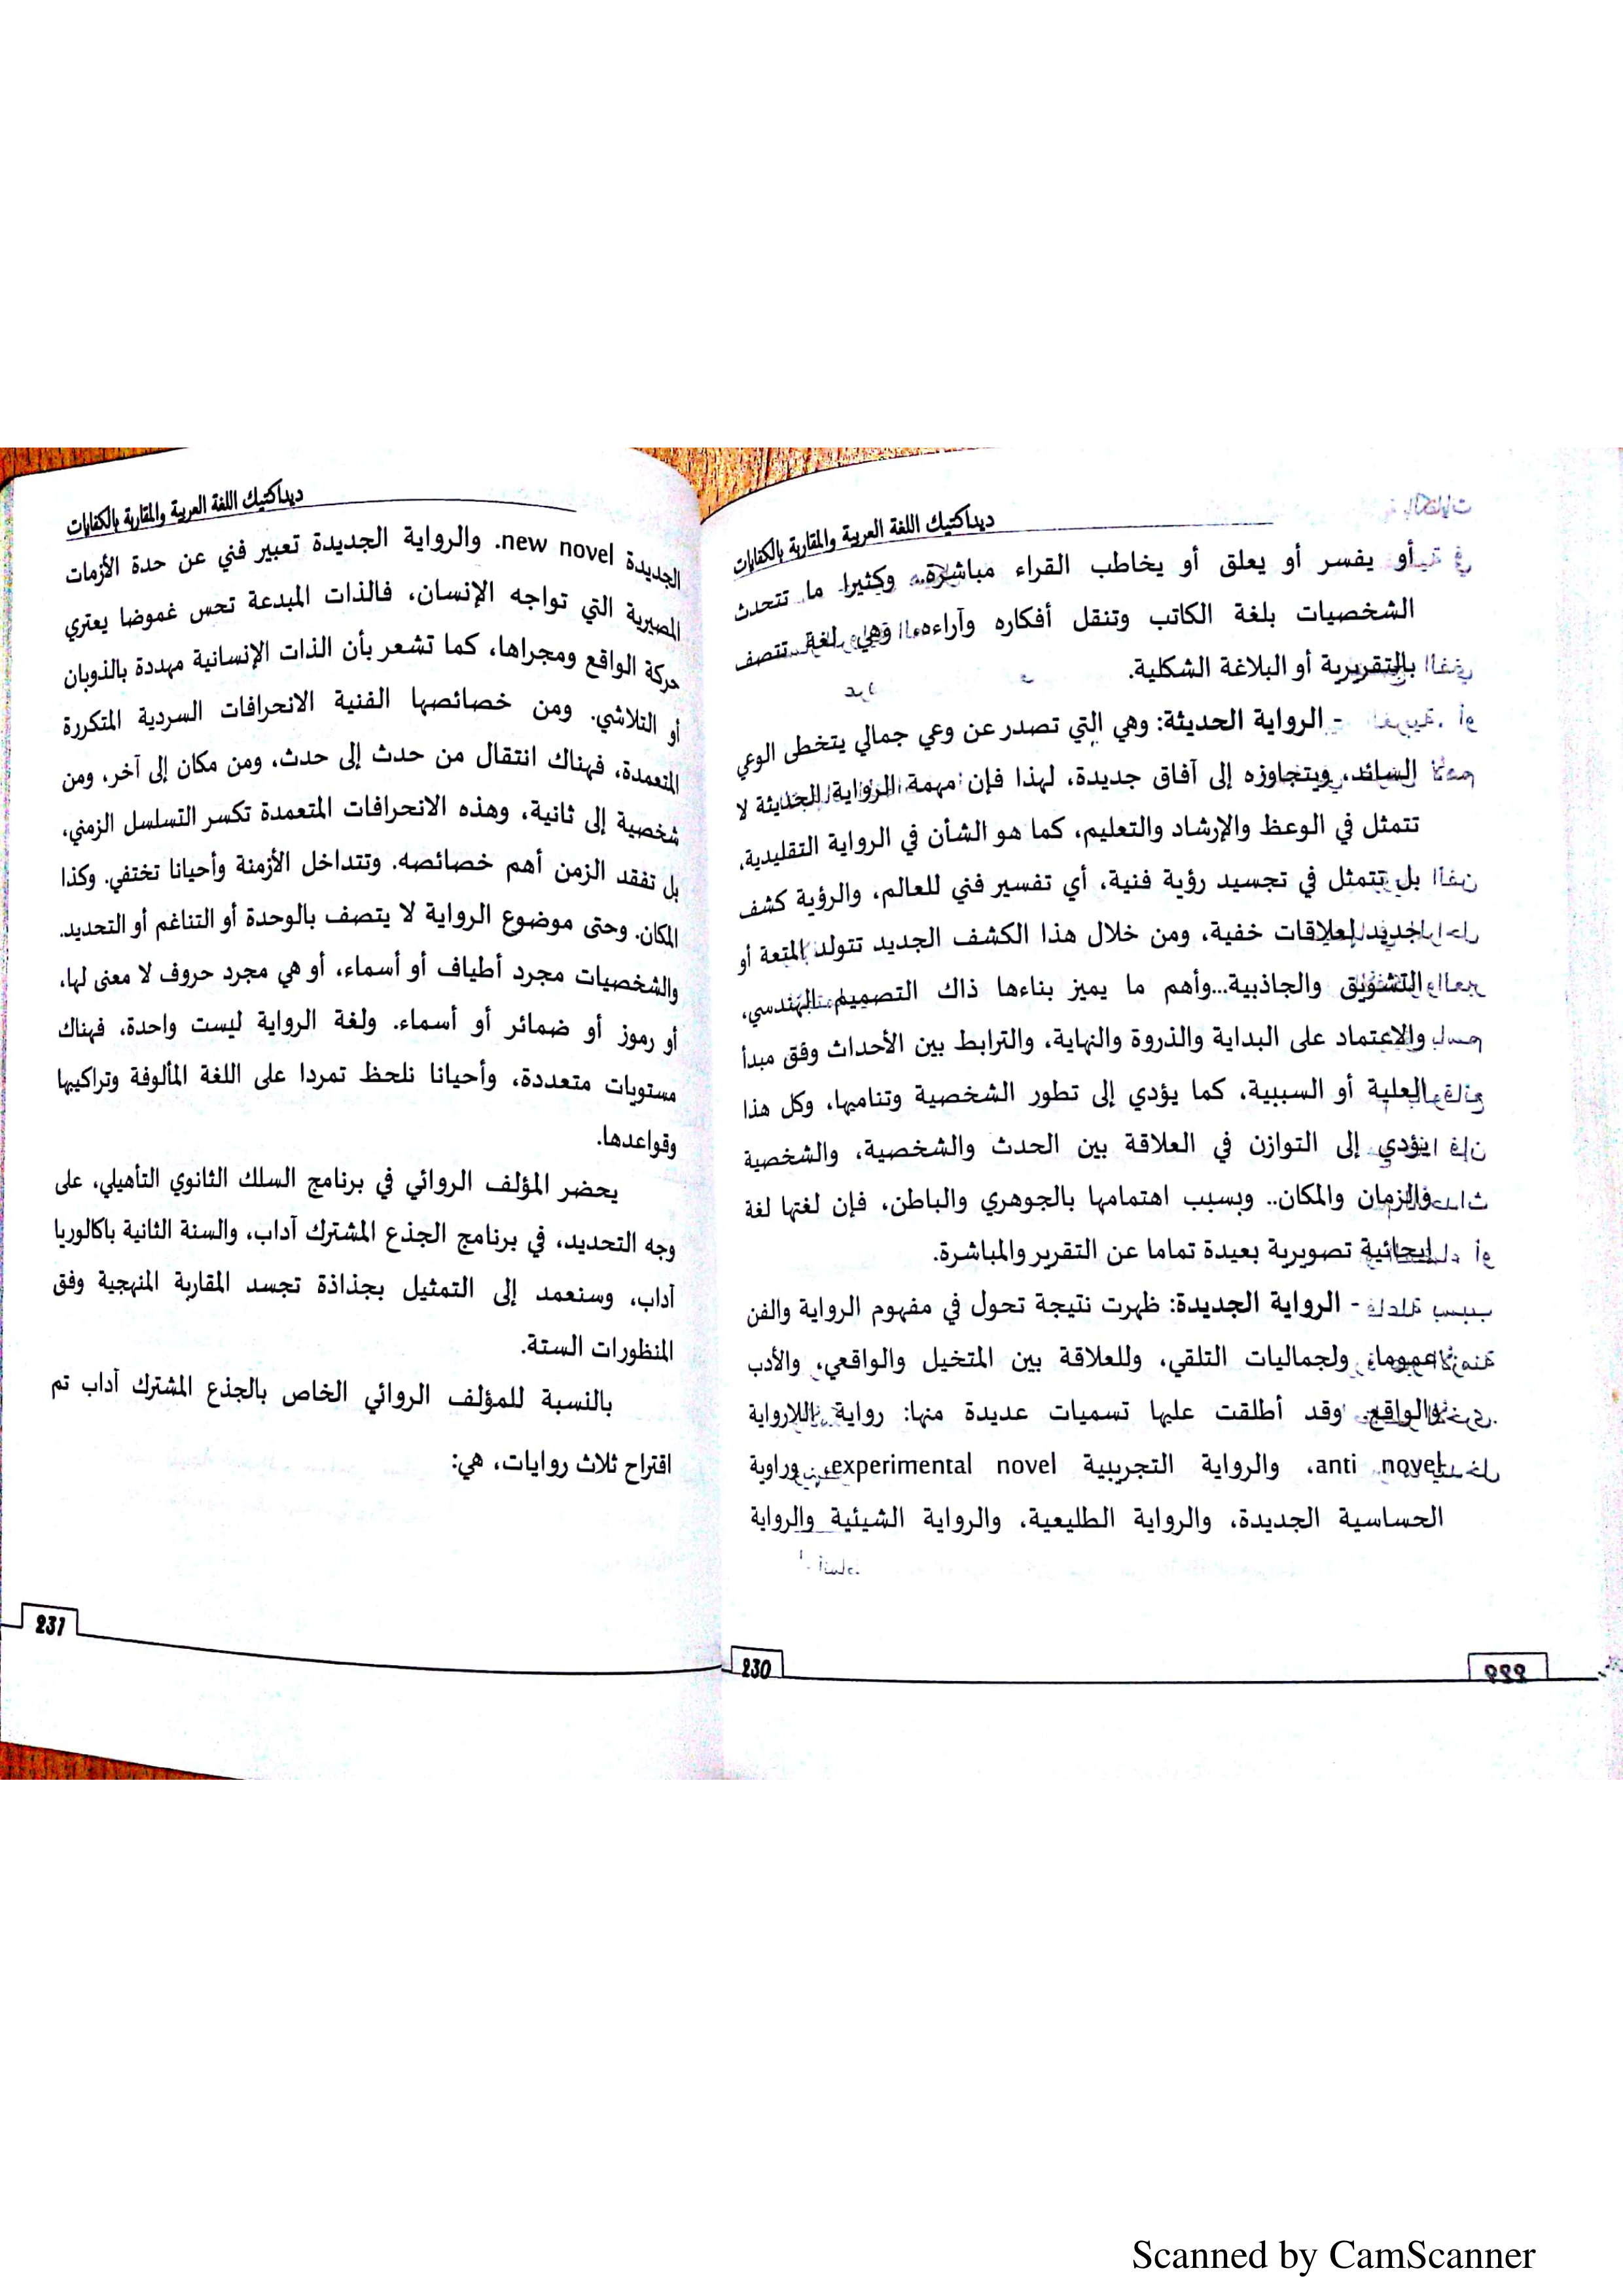 ديداكتيك اللغة العربية والمقاربة بالكفايات
أو يفسر أو يعلق أو يخاطب القراء مباشرة.. وكثيرا ما تتحدث
الشخصيات بلغة الكاتب وتنقل أفكاره وآراءه، وهي لغة تتصف
بالتقريرية أو البلاغة الشكلية.
- الرواية الحديثة: وهي التي تصدر عن وعي جمالي يتخطى الوعي
السائد، ويتجاوزه إلى آفاق جديدة، لهذا فإن مهمة الرواية الحديثة لا
تتمثل في الوعظ والإرشاد والتعليم، كما هو الشأن في الرواية التقليدية،
بل تتمثل في تجسيد رؤية فنية، أي تفسير فني للعالم، والرؤية كشف
جديد لعلاقات خفية، ومن خلال هذا الكشف الجديد تتولد المتعة أو
التشويق والجاذبية...وأهم ما يميز بناءها ذاك التصميم الهندسي،
والاعتماد على البداية والذروة والنهاية، والترابط بين الأحداث وفق مبدأ
العلية أو السببية، كما يؤدي إلى تطور الشخصية وتناميها، وكل هذا
يؤدي إلى التوازن في العلاقة بين الحدث والشخصية، والشخصية
والزمان والمكان.. وبسبب اهتمامها بالجوهري والباطن، فإن لغتها لغة
إيحائية تصويرية بعيدة تماما عن التقرير والمباشرة.
- الرواية الجديدة: ظهرت نتيجة تحول في مفهوم الرواية والفن
عموما، ولجماليات التلقي، وللعلاقة بين المتخيل والواقعي، والأدب
والواقع. وقد أطلقت عليها تسميات عديدة منها: رواية اللارواية
anti novel، والرواية التجريبية experimental novel، وراوية
الحساسية الجديدة، والرواية الطليعية، والرواية الشيئية والرواية
230
ديداكتيك اللغة العربية والمقاربة بالكفايات
الجديدة new novel. والرواية الجديدة تعبير فني عن حدة الأزمات
المصيرية التي تواجه الإنسان، فالذات المبدعة تحس غموضا يعتري
حركة الواقع ومجراها، كما تشعر بأن الذات الإنسانية مهددة بالذوبان
أو التلاشي. ومن خصائصها الفنية الانحرافات السردية المتكررة
المتعمدة، فهناك انتقال من حدث إلى حدث، ومن مكان إلى آخر، ومن
شخصية إلى ثانية، وهذه الانحرافات المتعمدة تكسر التسلسل الزمني،
بل تفقد الزمن أهم خصائصه. وتتداخل الأزمنة وأحيانا تختفي. وكذا
المكان. وحتى موضوع الرواية لا يتصف بالوحدة أو التناغم أو التحديد.
والشخصيات مجرد أطياف أو أسماء، أو هي مجرد حروف لا معنى لها،
أو رموز أو ضمائر أو أسماء. ولغة الرواية ليست واحدة، فهناك
مستويات متعددة، وأحيانا نلحظ تمردا على اللغة المألوفة وتراكيبها
وقواعدها.
يحضر المؤلف الروائي في برنامج السلك الثانوي التأهيلي، على
وجه التحديد، في برنامج الجذع المشترك آداب، والسنة الثانية باكالوريا
آداب، وسنعمد إلى التمثيل بجذاذة تجسد المقاربة المنهجية وفق
المنظورات الستة.
بالنسبة للمؤلف الروائي الخاص بالجذع المشترك آداب تم
اقتراح ثلاث روايات، هي:
231
Scanned by CamScanner